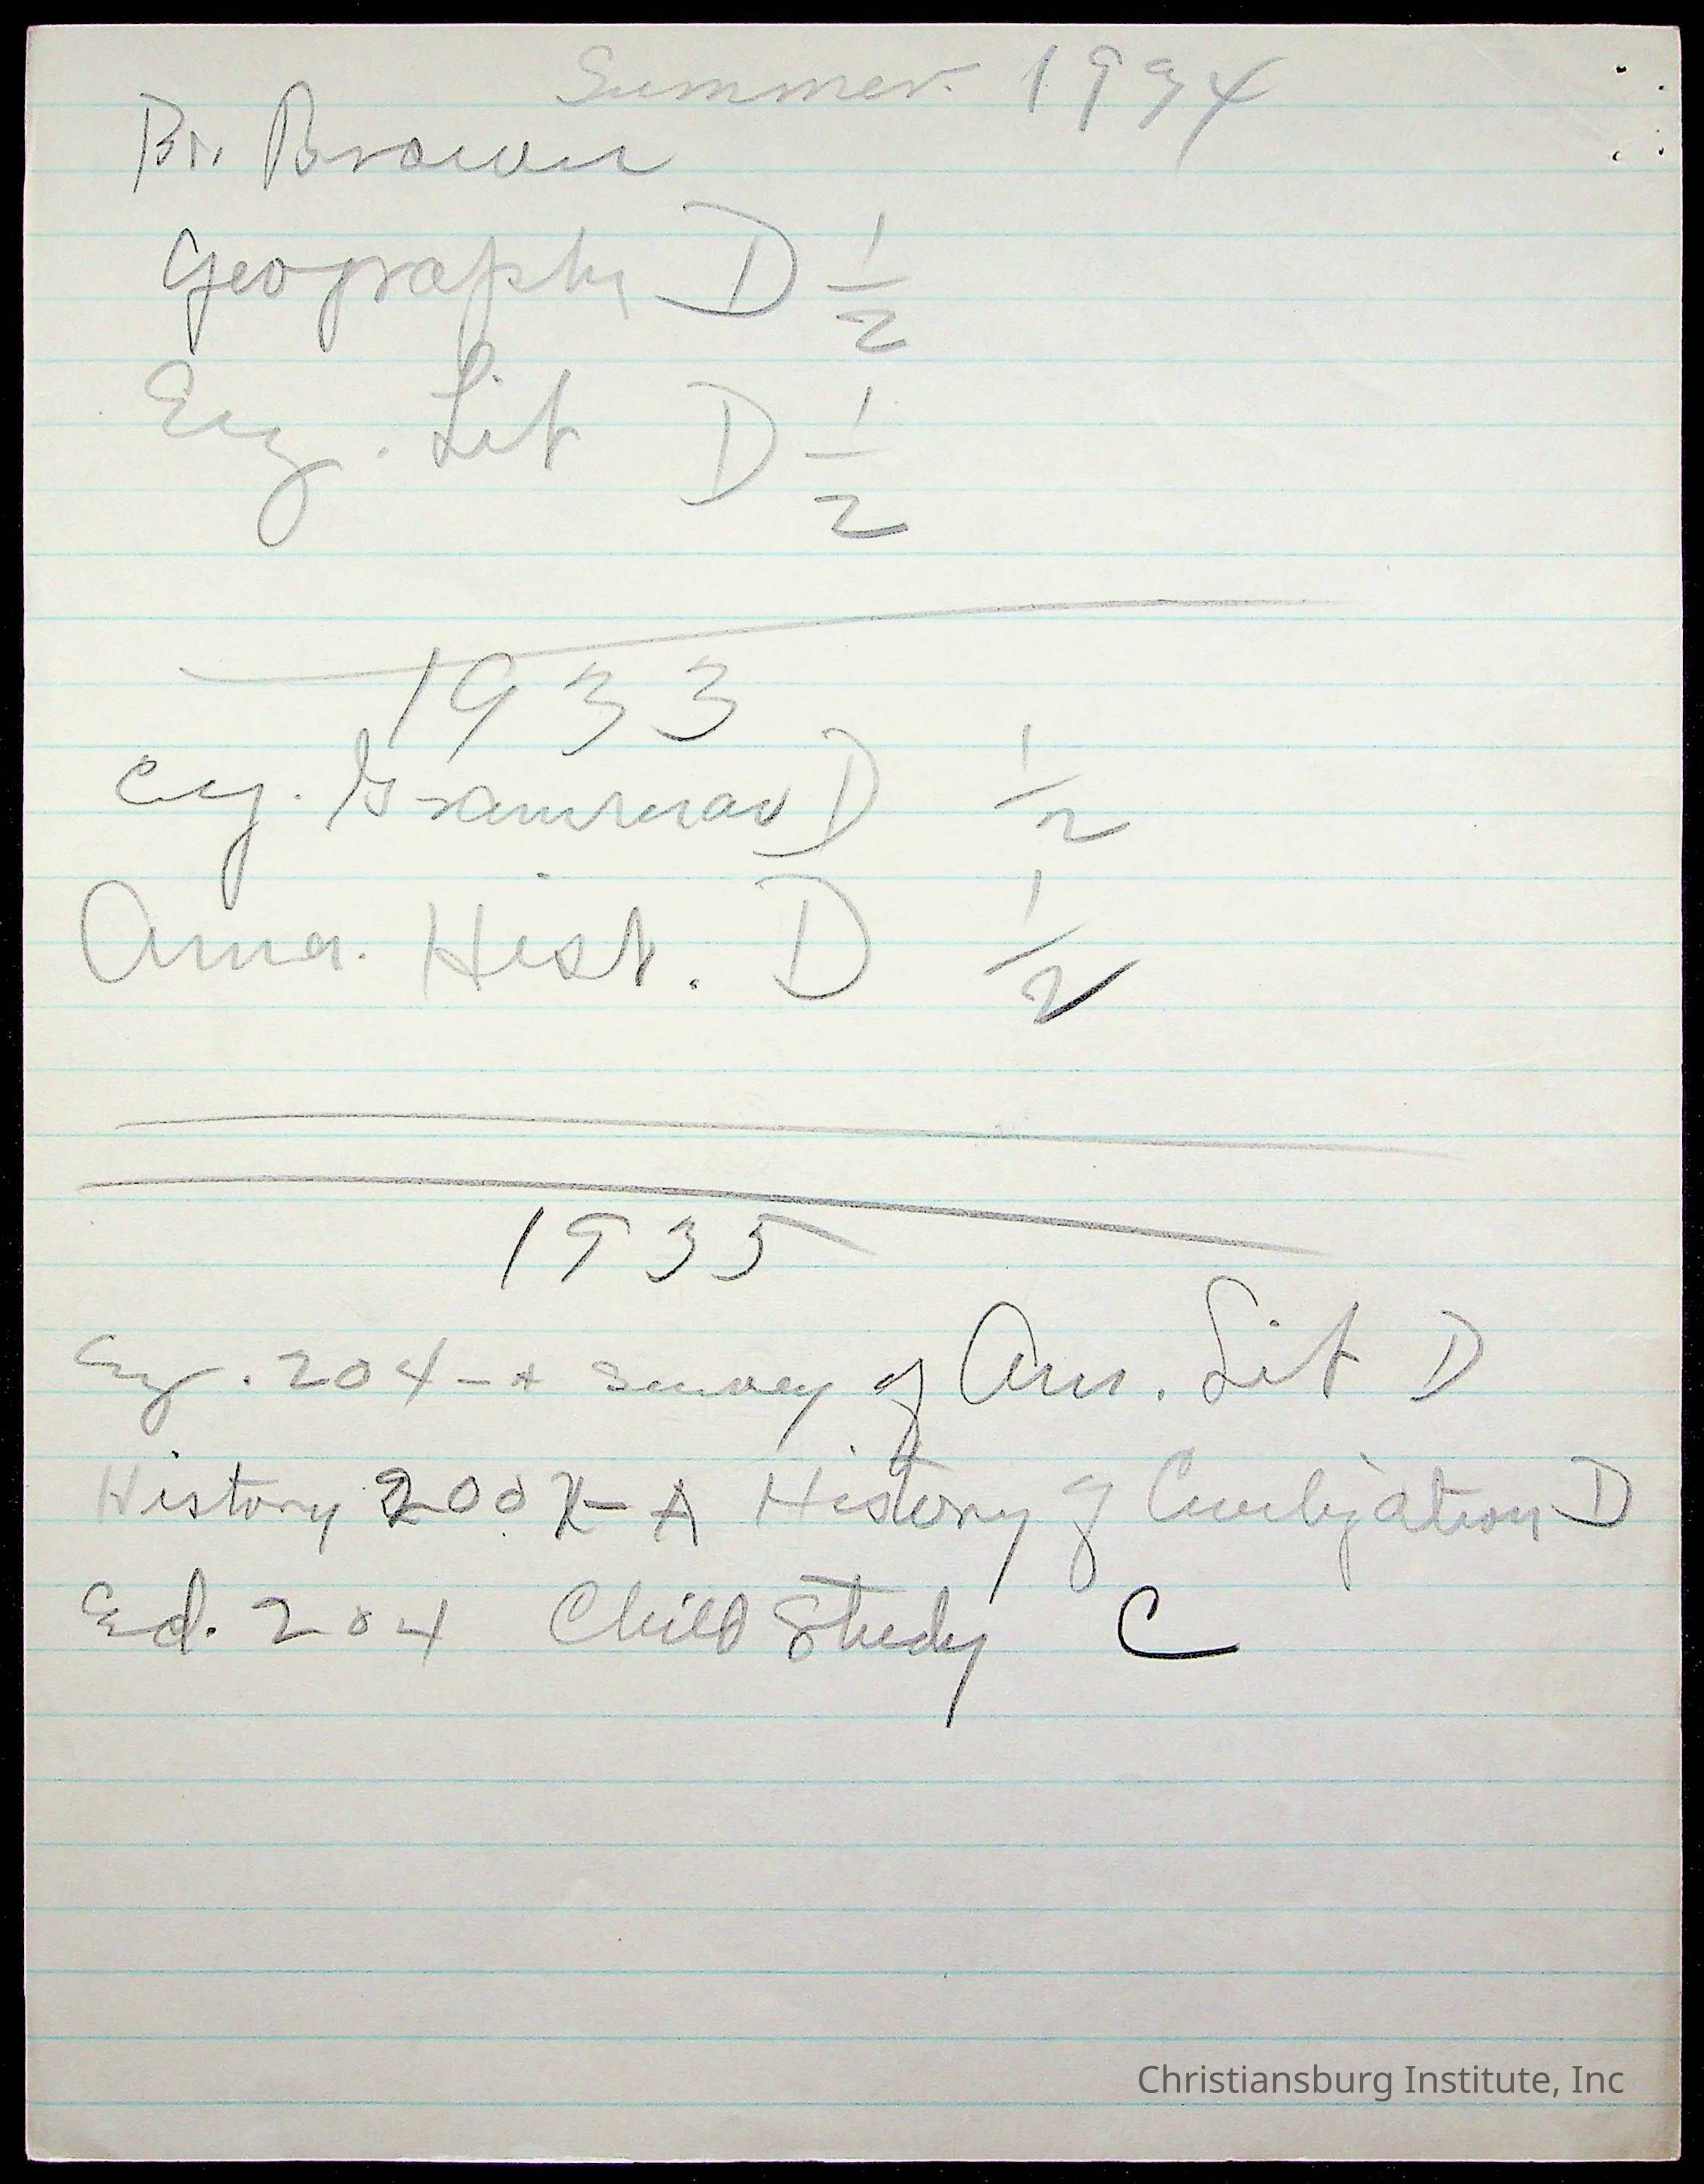 Summer. 1934
Br. Brown
Geography D 1/2
Eng. Lit D 1/2
1933
Eng. Grammar D 1/2
Amer. Hist. D 1/2
1935
Eng. 204 - A Survey of Am. Lit D
History 200 - A History of Civilization D
Ed. 204 Child Study C
Christiansburg Institute, Inc